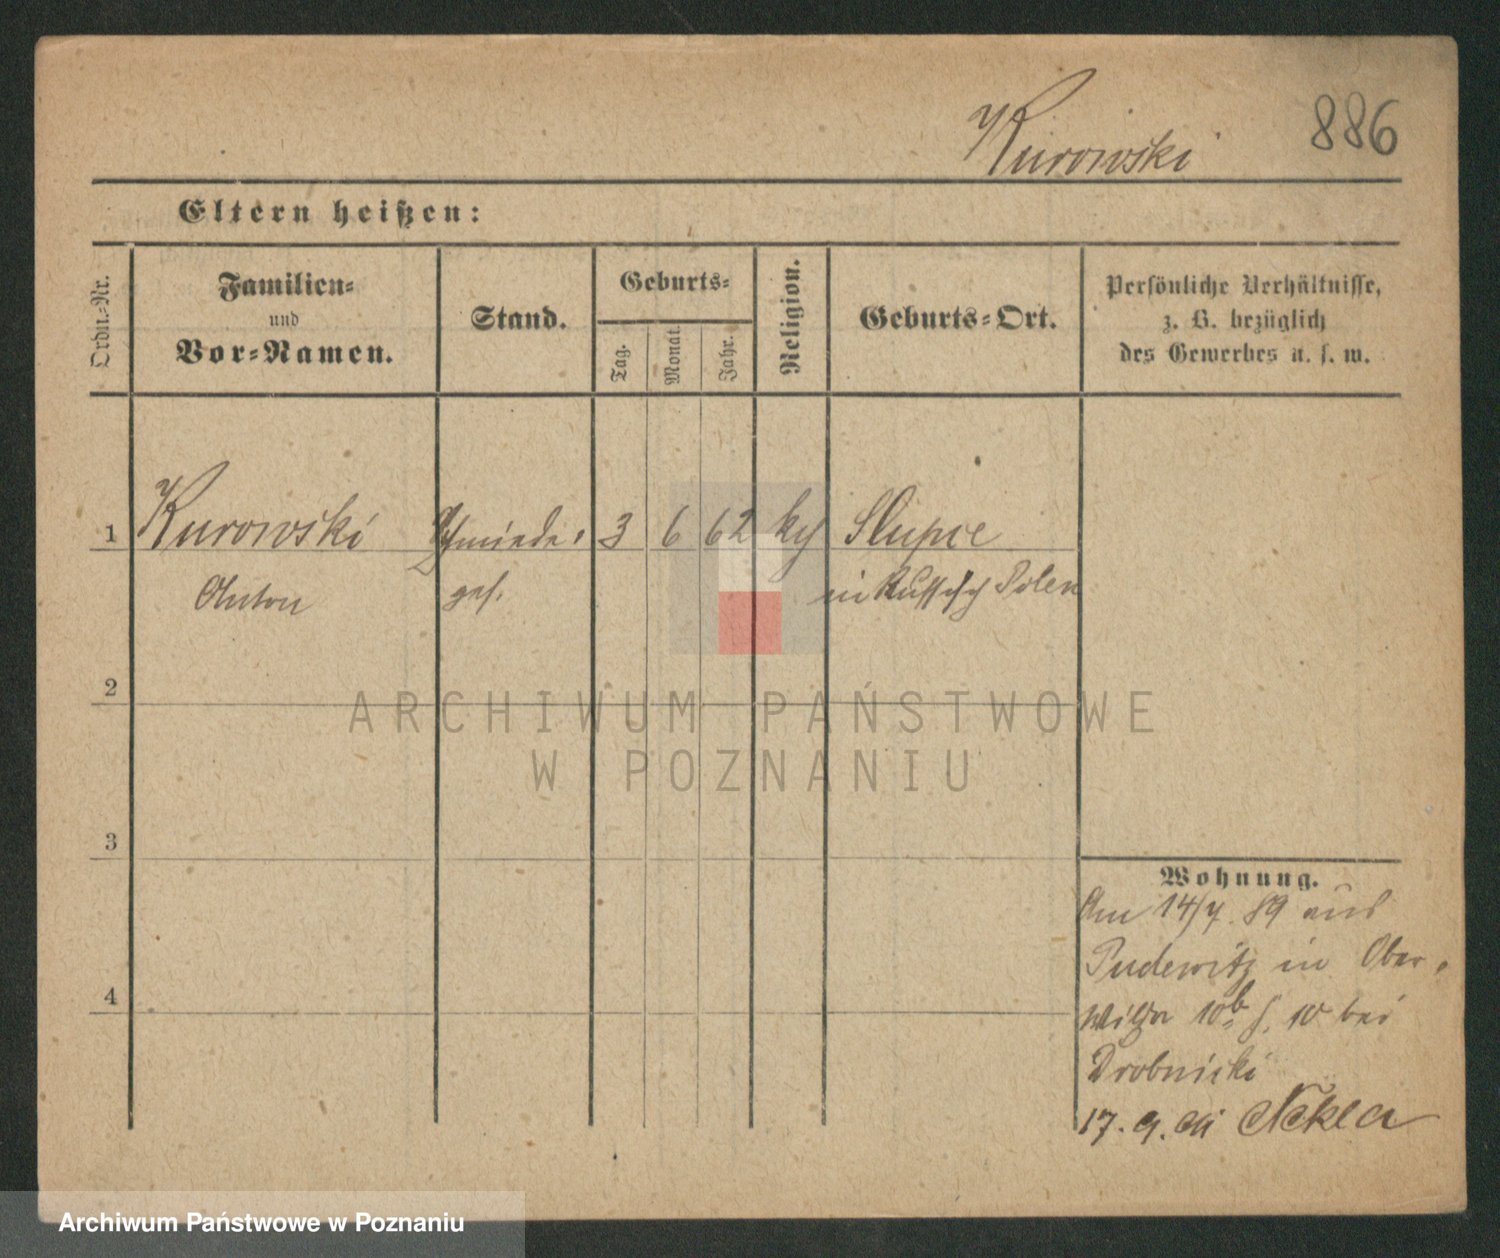 886
Kurowski
Eltern heißen:
Ordn.-Nr.
Familien-
und
Vor-Namen.
Stand.
Geburts-
Tag.
Monat.
Jahr.
Religion.
Geburts-Ort.
Persönliche Verhältnisse,
z. B. bezüglich
des Gewerbes u. s. w.
1 Kurowski Schmiede- 3 6 62 Slupce
Anton ges. in Russisch Polen
2
ARCHIWUM PAŃSTWOWE
W POZNANIU
3
4
Wohnung.
Am 14/7. 89 aus
Pudewitz in Ober-
Wilda 10b bei
Drobnicki
17. 9. Nekla
Archiwum Państwowe w Poznaniu